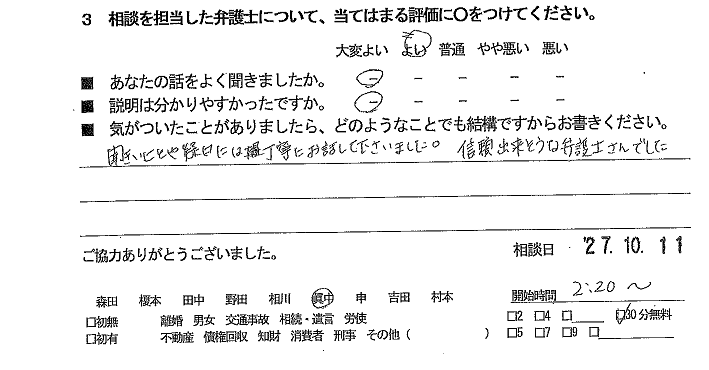 3 相談を担当した弁護士について、当てはまる評価に○をつけてください。
大変よい よい 普通 やや悪い 悪い
■ あなたの話をよく聞きましたか。 － － － － －
■ 説明は分かりやすかったですか。 － － － － －
■ 気がついたことがありましたら、どのようなことでも結構ですからお書きください。
聞きたいことや には 丁寧にお話してくださいました。 信頼出来そうな弁護士さんでした
ご協力ありがとうございました。 相談日 '27.10.11
森田 榎本 田中 野田 相川 眞中 申 吉田 村本 開始時間 2:20～
□初無 離婚 男女 交通事故 相続・遺言 労使 □2 □4 □ □30分無料
□初有 不動産 債権回収 知財 消費者 刑事 その他( ) □5 □7 □9 □